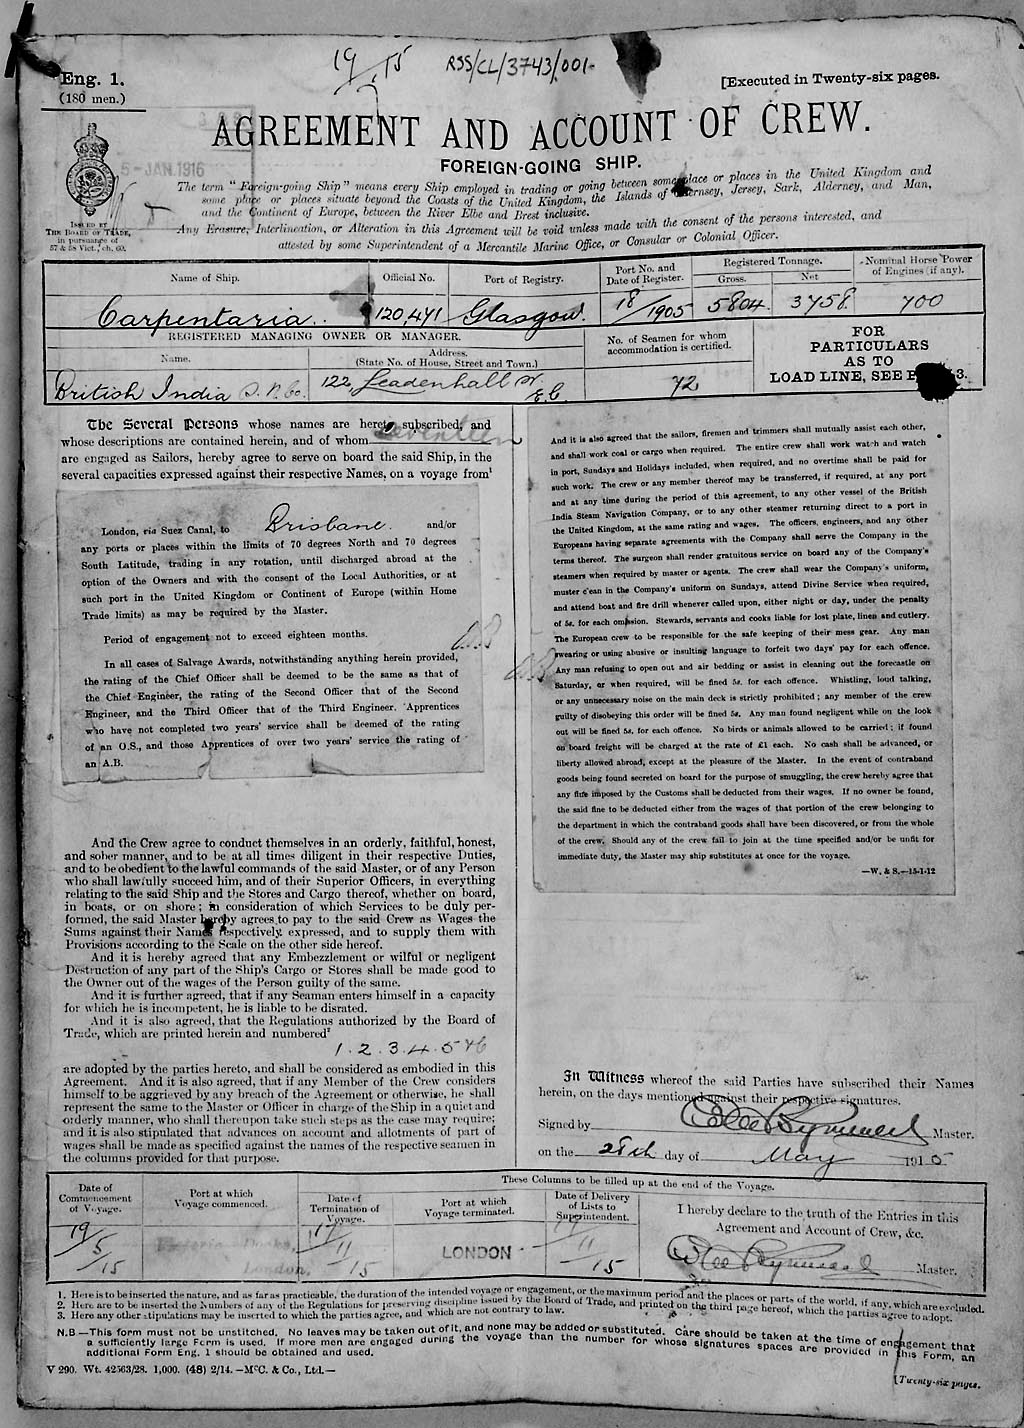 19/15 RSS/CL/3743/001-
Eng. 1.
(180 men.)
[Executed in Twenty-six pages.
AGREEMENT AND ACCOUNT OF CREW.
FOREIGN-GOING SHIP.
5-JAN.1916
ISSUED BY
THE BOARD OF TRADE,
in pursuance of
57 & 58 Vict., ch. 60.
The term "Foreign-going Ship" means every Ship employed in trading or going between some place or places in the United Kingdom and
some place or places situate beyond the Coasts of the United Kingdom, the Islands of Guernsey, Jersey, Sark, Alderney, and Man,
and the Continent of Europe, between the River Elbe and Brest inclusive.
Any Erasure, Interlineation, or Alteration in this Agreement will be void unless made with the consent of the persons interested, and
attested by some Superintendent of a Mercantile Marine Office, or Consular or Colonial Officer.
Name of Ship. Official No. Port of Registry. Port No. and Date of Register. Registered Tonnage. Gross. Net. Nominal Horse Power of Engines (if any).
Carpentaria. 120,471 Glasgow. 18/1905 5804. 3758. 700
REGISTERED MANAGING OWNER OR MANAGER.
Name. Address. (State No. of House, Street and Town.) No. of Seamen for whom accommodation is certified.
British India S. N. Co. 122, Leadenhall St. E.C. 72,
FOR
PARTICULARS
AS TO
LOAD LINE, SEE 3.
The Several Persons whose names are hereto subscribed, and
whose descriptions are contained herein, and of whom seventeen
are engaged as Sailors, hereby agree to serve on board the said Ship, in the
several capacities expressed against their respective Names, on a voyage from¹
London, via Suez Canal, to Brisbane. and/or
any ports or places within the limits of 70 degrees North and 70 degrees
South Latitude, trading in any rotation, until discharged abroad at the
option of the Owners and with the consent of the Local Authorities, or at
such port in the United Kingdom or Continent of Europe (within Home
Trade limits) as may be required by the Master.
Period of engagement not to exceed eighteen months.
In all cases of Salvage Awards, notwithstanding anything herein provided,
the rating of the Chief Officer shall be deemed to be the same as that of
the Chief Engineer, the rating of the Second Officer that of the Second
Engineer, and the Third Officer that of the Third Engineer. Apprentices
who have not completed two years' service shall be deemed of the rating
of an O.S., and those Apprentices of over two years' service the rating of
an A.B.
And the Crew agree to conduct themselves in an orderly, faithful, honest,
and sober manner, and to be at all times diligent in their respective Duties,
and to be obedient to the lawful commands of the said Master, or of any Person
who shall lawfully succeed him, and of their Superior Officers, in everything
relating to the said Ship and the Stores and Cargo thereof, whether on board,
in boats, or on shore; in consideration of which Services to be duly per-
formed, the said Master hereby agrees to pay to the said Crew as Wages the
Sums against their Names respectively expressed, and to supply them with
Provisions according to the Scale on the other side hereof.
And it is hereby agreed that any Embezzlement or wilful or negligent
Destruction of any part of the Ship's Cargo or Stores shall be made good to
the Owner out of the wages of the Person guilty of the same.
And it is further agreed, that if any Seaman enters himself in a capacity
for which he is incompetent, he is liable to be disrated.
And it is also agreed, that the Regulations authorized by the Board of
Trade, which are printed herein and numbered²
1. 2. 3. 4. 5 & 6
are adopted by the parties hereto, and shall be considered as embodied in this
Agreement. And it is also agreed, that if any Member of the Crew considers
himself to be aggrieved by any breach of the Agreement or otherwise, he shall
represent the same to the Master or Officer in charge of the Ship in a quiet and
orderly manner, who shall thereupon take such steps as the case may require;
and it is also stipulated that advances on account and allotments of part of
wages shall be made as specified against the names of the respective seamen in
the columns provided for that purpose.
And it is also agreed that the sailors, firemen and trimmers shall mutually assist each other,
and shall work coal or cargo when required. The entire crew shall work watch and watch
in port, Sundays and Holidays included, when required, and no overtime shall be paid for
such work. The crew or any member thereof may be transferred, if required, at any port
and at any time during the period of this agreement, to any other vessel of the British
India Steam Navigation Company, or to any other steamer returning direct to a port in
the United Kingdom, at the same rating and wages. The officers, engineers, and any other
Europeans having separate agreements with the Company shall serve the Company in the
terms thereof. The surgeon shall render gratuitous service on board any of the Company's
steamers when required by master or agents. The crew shall wear the Company's uniform,
muster clean in the Company's uniform on Sundays, attend Divine Service when required,
and attend boat and fire drill whenever called upon, either night or day, under the penalty
of 5s. for each omission. Stewards, servants and cooks liable for lost plate, linen and cutlery.
The European crew to be responsible for the safe keeping of their mess gear. Any man
swearing or using abusive or insulting language to forfeit two days' pay for each offence.
Any man refusing to open out and air bedding or assist in cleaning out the forecastle on
Saturday, or when required, will be fined 5s. for each offence. Whistling, loud talking,
or any unnecessary noise on the main deck is strictly prohibited; any member of the crew
guilty of disobeying this order will be fined 5s. Any man found negligent while on the look
out will be fined 5s. for each offence. No birds or animals allowed to be carried; if found
on board freight will be charged at the rate of £1 each. No cash shall be advanced, or
liberty allowed abroad, except at the pleasure of the Master. In the event of contraband
goods being found secreted on board for the purpose of smuggling, the crew hereby agree that
any fine imposed by the Customs shall be deducted from their wages. If no owner be found,
the said fine to be deducted either from the wages of that portion of the crew belonging to
the department in which the contraband goods shall have been discovered, or from the whole
of the crew. Should any of the crew fail to join at the time specified and/or be unfit for
immediate duty, the Master may ship substitutes at once for the voyage.
—W. & S.—15-1-12
In Witness whereof the said Parties have subscribed their Names
herein, on the days mentioned against their respective signatures.
Signed by Master.
on the 28th day of May 1915
These Columns to be filled up at the end of the Voyage.
Date of Commencement of Voyage. Port at which Voyage commenced. Date of Termination of Voyage. Port at which Voyage terminated. Date of Delivery of Lists to Superintendent.
19/5/15 London. 17/11/15 LONDON 17/11/15
I hereby declare to the truth of the Entries in this
Agreement and Account of Crew, &c.
Master.
1. Here is to be inserted the nature, and as far as practicable, the duration of the intended voyage or engagement, or the maximum period and the places or parts of the world, if any, which are excluded.
2. Here are to be inserted the Numbers of any of the Regulations for preserving discipline issued by the Board of Trade, and printed on the third page hereof, which the parties agree to adopt.
3. Here any other stipulations may be inserted to which the parties agree, and which are not contrary to law.
N.B—This form must not be unstitched. No leaves may be taken out of it, and none may be added or substituted. Care should be taken at the time of engagement that
a sufficiently large Form is used. If more men are engaged during the voyage than the number for whose signatures spaces are provided in this Form, an
additional Form Eng. 1 should be obtained and used.
V 290. Wt. 42563/28. 1,000. (48) 2/14.—McC. & Co., Ltd.—
[Twenty-six pages.